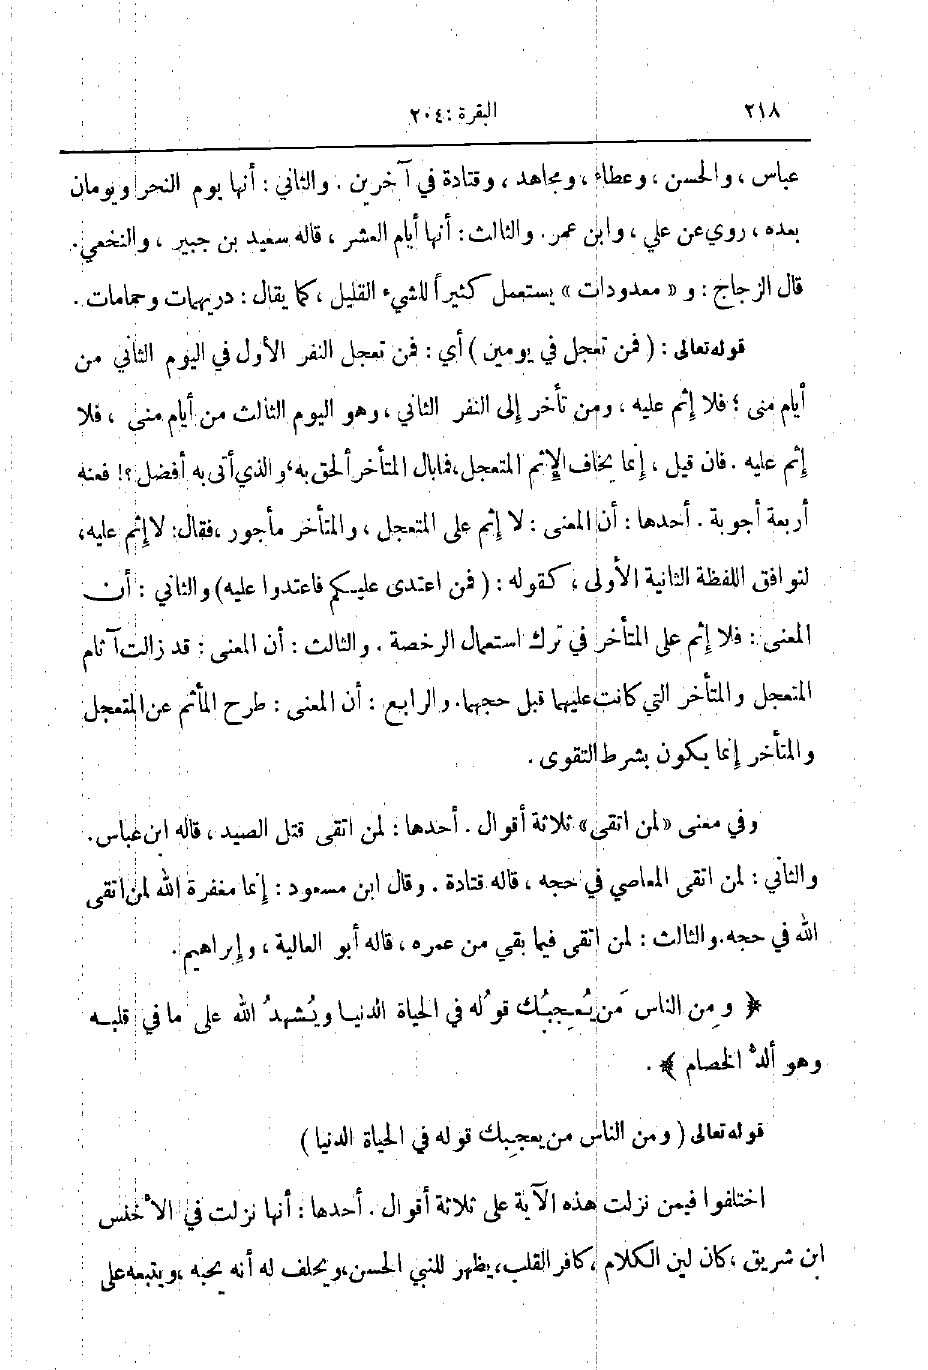 ٢١٨
البقرة : ٢٠٤
عباس ، والحسن ، وعطاء ، ومجاهد ، وقتادة في آخرين . والثاني : أنها يوم النحر ويومان
بعده ، روي عن علي ، وابن عمر . والثالث : أنها أيام العشر ، قاله سعيد بن جبير ، والنخعي .
قال الزجاج : و « معدودات » يستعمل كثيراً للشيء القليل ، كما يقال : دريهمات وحمامات .
قوله تعالى : ( فمن تعجل في يومين ) أي : فمن تعجل النفر الأول في اليوم الثاني من
أيام منى ؛ فلا إثم عليه ، ومن تأخر إلى النفر الثاني ، وهو اليوم الثالث من أيام منى ، فلا
إثم عليه . فان قيل ، إنما يخاف الإثم المتعجل ، فما بال المتأخر ألحق به ، والذي أتى به أفضل ؟! فعنه
أربعة أجوبة . أحدها : أن المعنى : لا إثم على المتعجل ، والمتأخر مأجور ، فقال : لا إثم عليه ،
لتوافق اللفظة الثانية الأولى ، كقوله : ( فمن اعتدى عليكم فاعتدوا عليه ) والثاني : أن
المعنى : فلا إثم على المتأخر في ترك استعمال الرخصة . والثالث : أن المعنى : قد زالت آثام
المتعجل والمتأخر التي كانت عليهما قبل حجهما . والرابع : أن المعنى : طرح المأثم عن المتعجل
والمتأخر إنما يكون بشرط التقوى .
وفي معنى « لمن اتقى » ثلاثة أقوال . أحدها : لمن اتقى قتل الصيد ، قاله ابن عباس .
والثاني : لمن اتقى المعاصي في حجه ، قاله قتادة . وقال ابن مسعود : إنما مغفرة الله لمن اتقى
الله في حجه . والثالث : لمن اتقى فيما بقي من عمره ، قاله أبو العالية ، وإبراهيم .
﴿ ومِن الناس مَن يُعجِبُك قولُه في الحياة الدنيا ويُشهدُ الله على ما في قلبه
وهو ألدّ الخصام ﴾ .
قوله تعالى ( ومن الناس من يعجبك قوله في الحياة الدنيا )
اختلفوا فيمن نزلت هذه الآية على ثلاثة أقوال . أحدها : أنها نزلت في الأخنس
ابن شريق ، كان لين الكلام ، كافر القلب ، يظهر للنبي الحسن ، ويحلف له أنه يحبه ، ويتبعه على